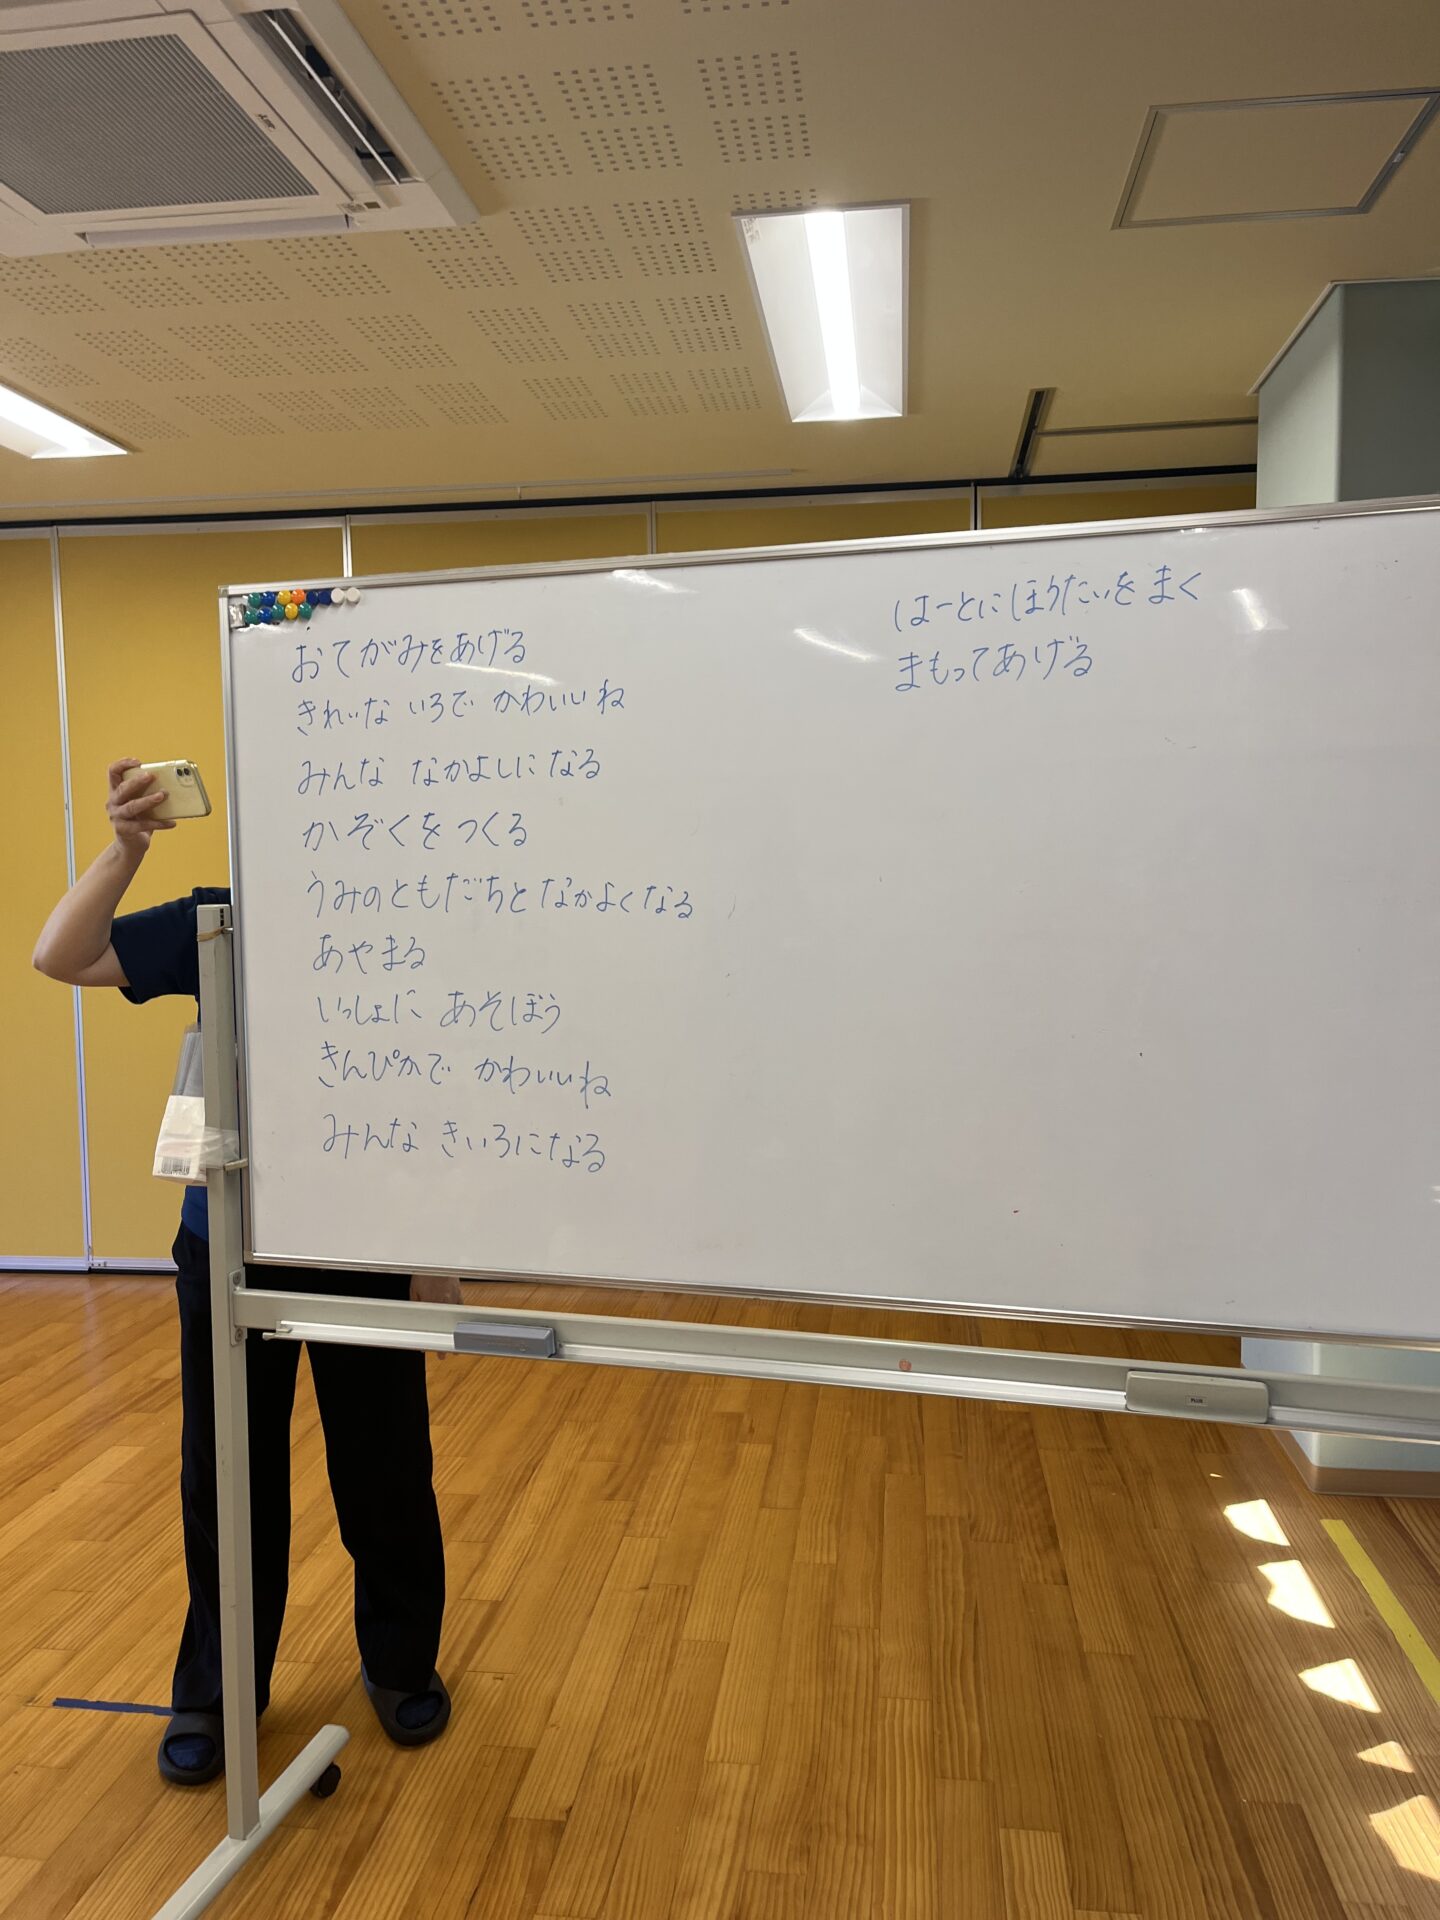 おてがみをあげる
きれいな いろで かわいいね
みんな なかよしに なる
かぞくを つくる
うみのともだちと なかよくなる
あやまる
いっしょに あそぼう
きんぴかで かわいいね
みんな きいろになる
はーとにほうたいを まく
まもってあげる
PLUS